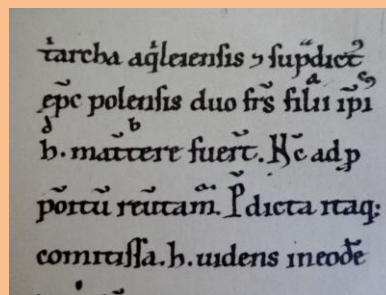 t̄archa aq̉leiensis ⁊ sup̄dict᷒
ep̄c polensis duo fr̄s filii ip̄i
h. mat̄tere fuer̄t. H̄c ad ꝑ
pōrtū reūtam̄. P̄dicta itaq;
comitissa. h. uidens in eodē